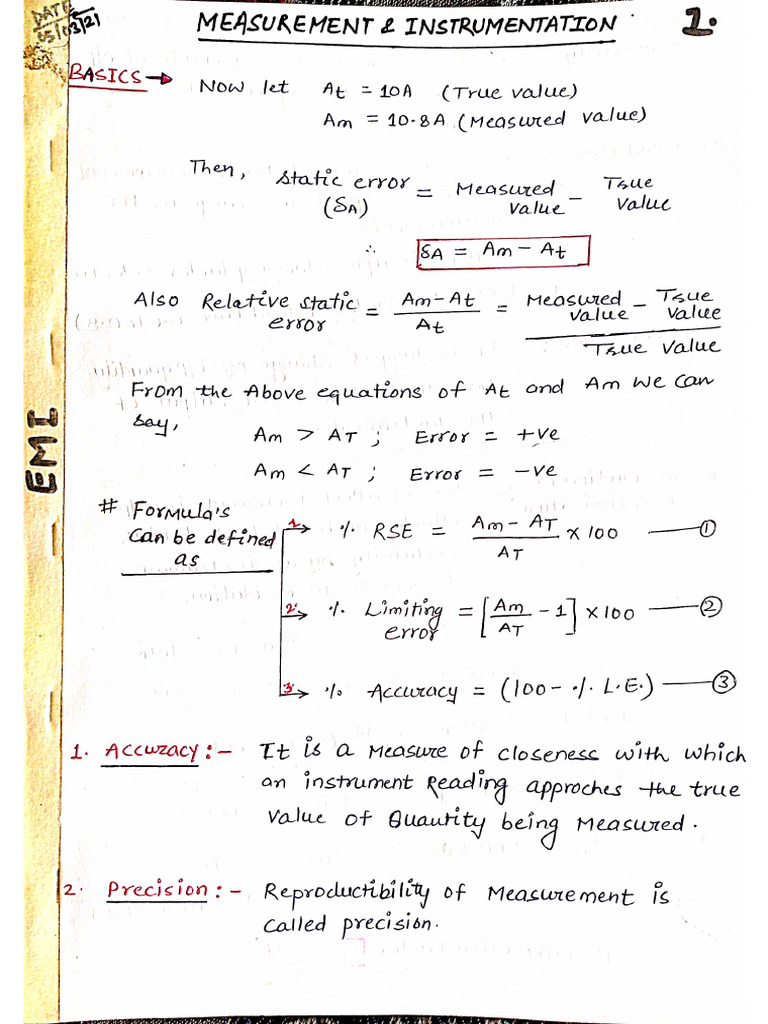 DATE
05/03/21
MEASUREMENT & INSTRUMENTATION 1.
BASICS → Now let At = 10A (True value)
Am = 10.8A (Measured value)
Then, Static error (δA) = Measured value - True value
∴ δA = Am - At
Also Relative static error = Am-At / At = Measured value - True value / True value
From the Above equations of At and Am we can
say,
Am > AT ; Error = +ve
Am < AT ; Error = -ve
EMI
# Formula's
can be defined
as
1. → % RSE = Am - AT / AT × 100 — ①
2. → % Limiting error = [Am / AT - 1] × 100 — ②
3. → % Accuracy = (100 - % L.E.) — ③
1. Accuracy :- It is a Measure of closeness with which
an instrument Reading approches the true
value of Quantity being Measured.
2. Precision :- Reproductibility of Measurement is
called precision.